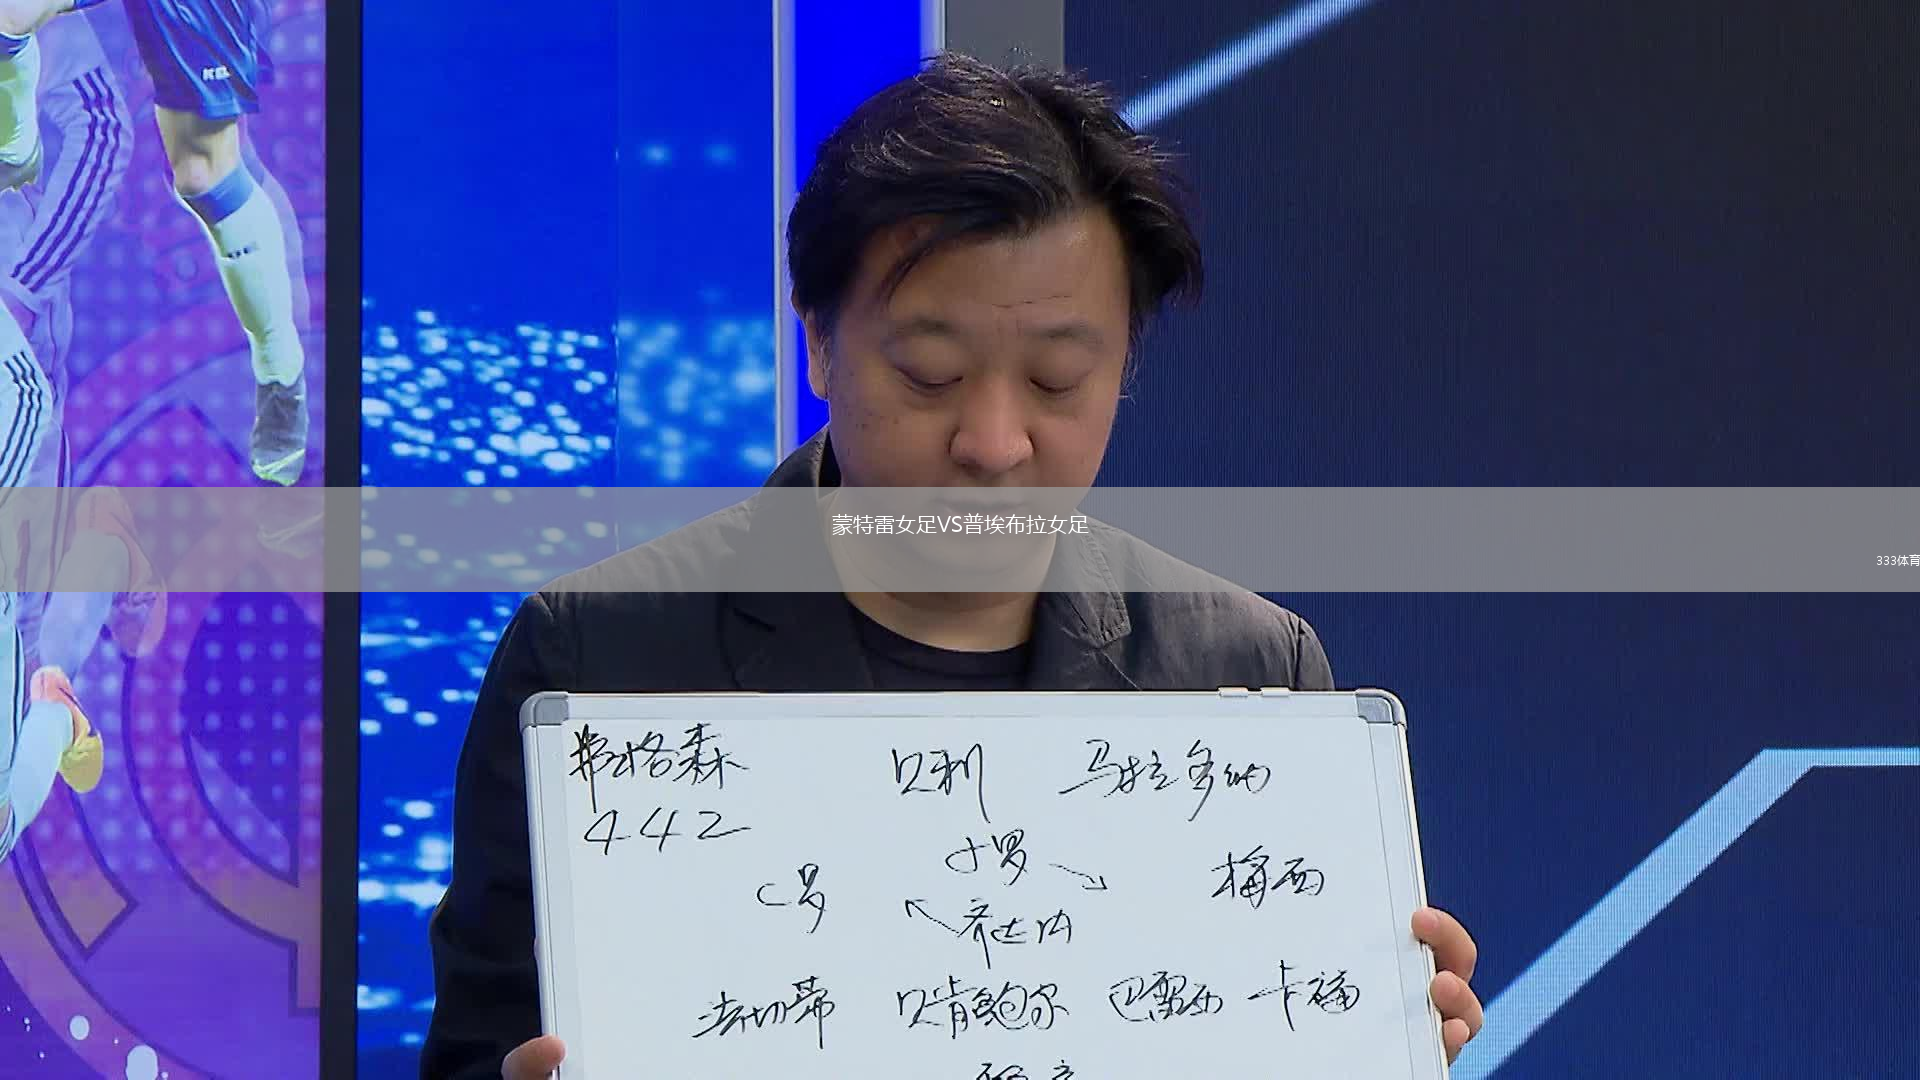 蒙特雷女足VS普埃布拉女足
333体育
弗格森 贝利 马拉多纳
442
小罗
C罗 梅西
齐达内
法切蒂 贝肯鲍尔 巴雷西 卡福